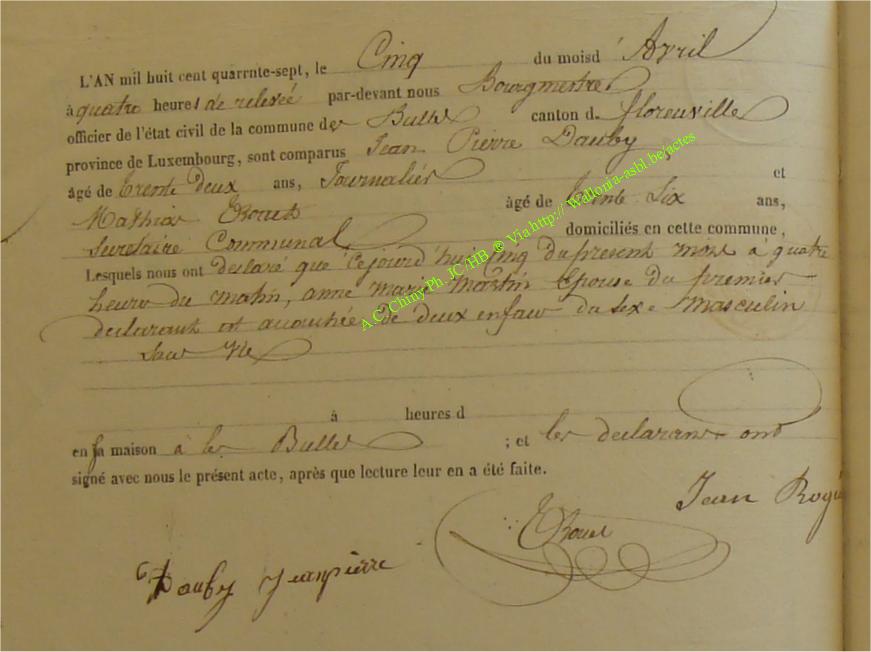 L'AN mil huit cent quarrnte-sept, le Cinq du moisd' Avril
à quatre heures de relevée par-devant nous Bourgmestre
officier de l'état civil de la commune des Bulles canton d. florenville
province de Luxembourg, sont comparus Jean Pierre Dauby,
âgé de trente deux ans, Journalier et
Mathias âgé de trente Six ans,
Secretaire Communal domiciliés en cette commune,
Lesquels nous ont declaré que cejourd'hui Cinq du present mois à quatre
heure du matin, anne marie martin Epouse du premier
declarant est accouchée de deux enfans du sexe masculin
sans vie
à heures d
en sa maison à les Bulles ; et les declarans ont
signé avec nous le présent acte, après que lecture leur en a été faite.
Jean
Dauby Jeanpierre
A.C. Chiny Ph. JC /HB ® Via http:// Wallonia-asbl.be/actes